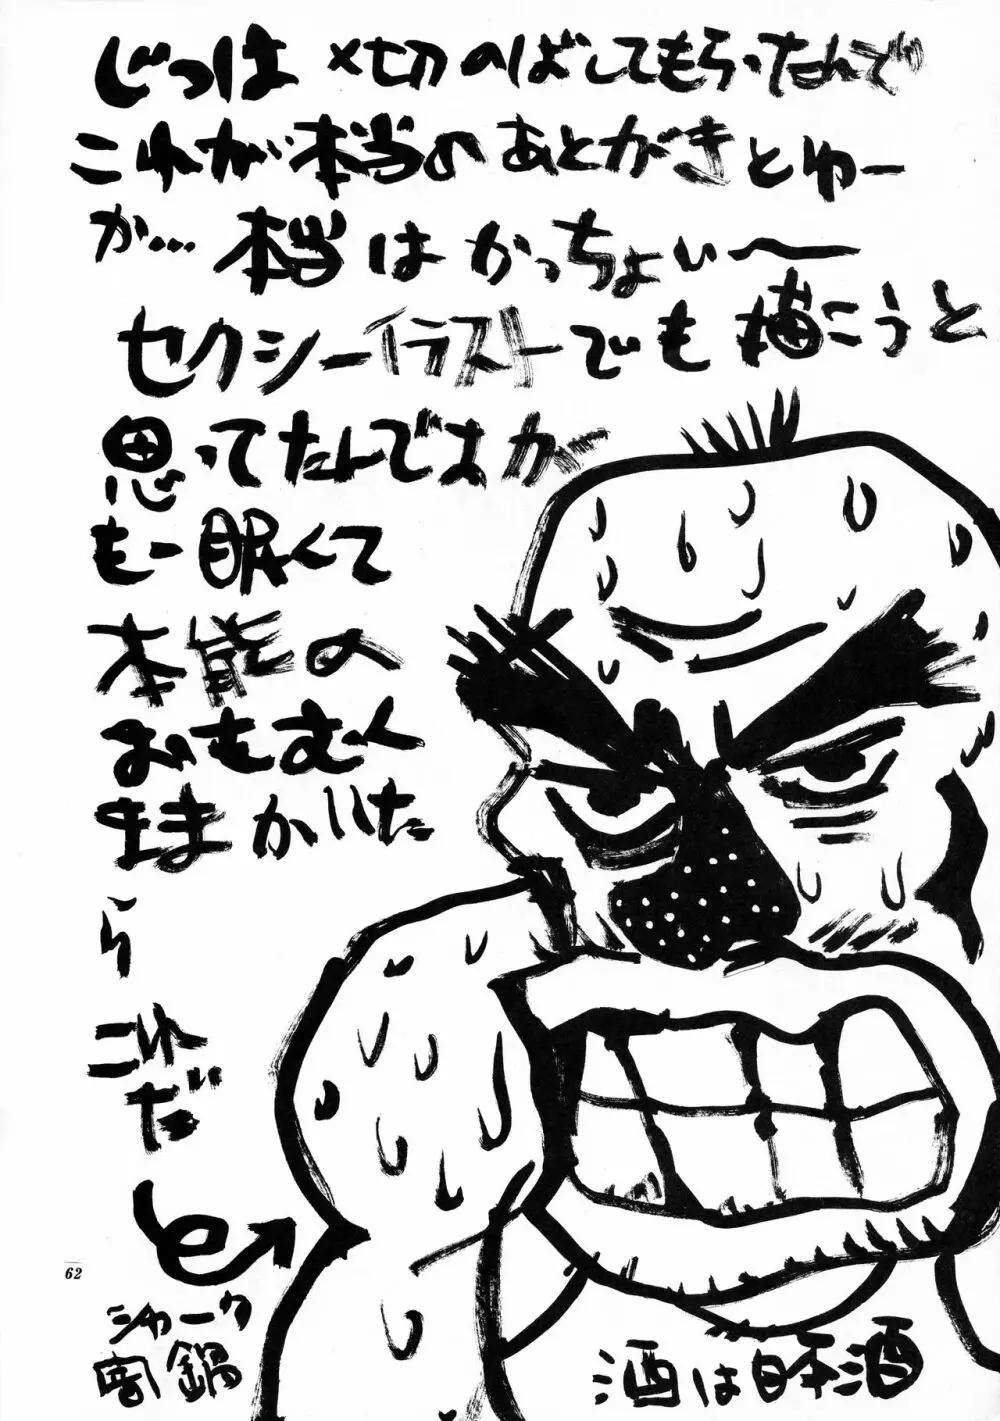 じつは〆切のばしてもらったんで
これが本当のあとがきとゆー
か…本当はかっちょいー
セクシーイラストでも描こうと
思ってたんですが
もー眠くて
本能の
おもむく
ままかいた
ら
これ
だ
シャーク
鍋
酒は日本酒
62